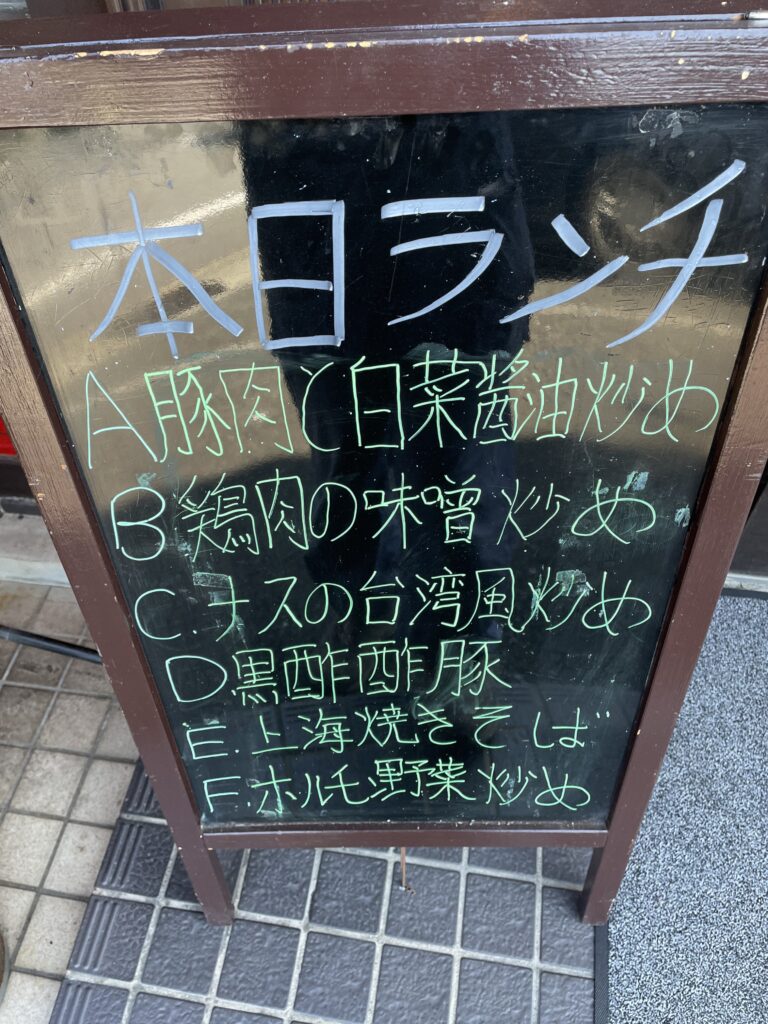 本日ランチ
A豚肉と白菜醤油炒め
B鶏肉の味噌炒め
C.ナスの台湾風炒め
D黒酢酢豚
E.上海焼きそば
F.ホルモ野菜炒め